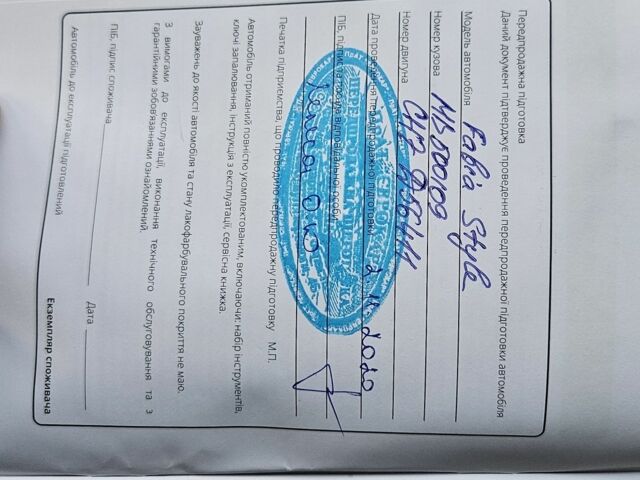 Передпродажна підготовка
Даний документ підтверджує проведення передпродажної підготовки автомобіля
Модель автомобіля Fabia Style
Номер кузова NB000109
Номер двигуна
Дата проведення передпродажної підготовки 11.2020
ПІБ, підпис та посада відповідальної особи
Печатка підприємства, що проводило передпродажну підготовку М.П.
Автомобіль отриманий повністю укомплектованим, включаючи: набір інструментів,
ключі запалювання, інструкція з експлуатації, сервісна книжка.
Зауважень до якості автомобіля та стану лакофарбувального покриття не маю.
З вимогами до експлуатації, виконання технічного обслуговування та з
гарантійними зобов'язаннями ознайомлений.
Дата
ПІБ, підпис споживача
Автомобіль до експлуатації підготовлений
Екземпляр споживача